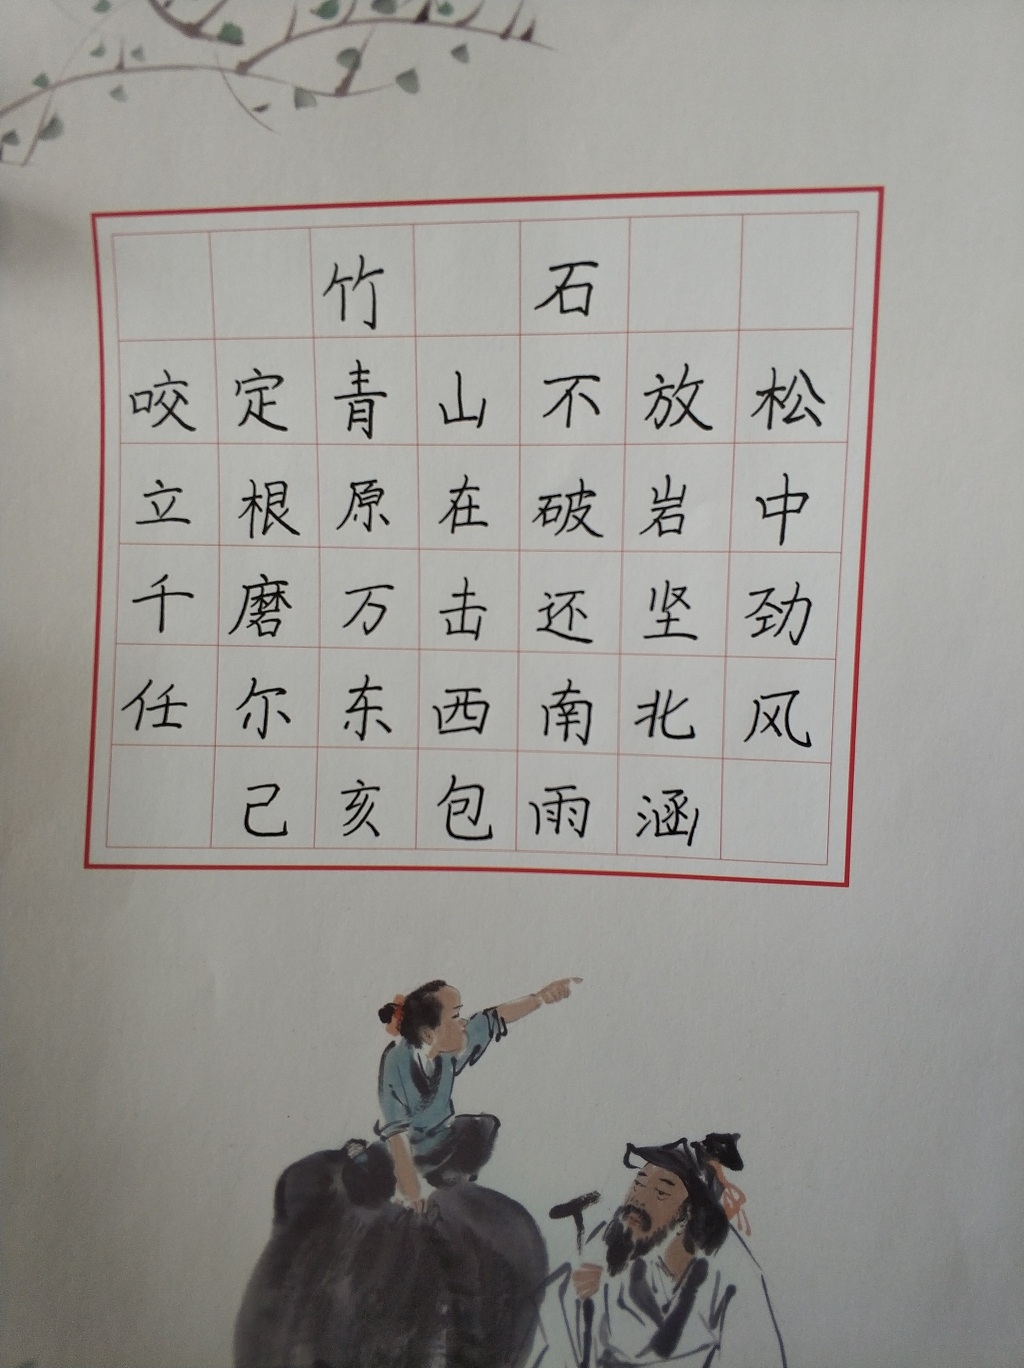 竹石
咬定青山不放松
立根原在破岩中
千磨万击还坚劲
任尔东西南北风
己亥包雨涵